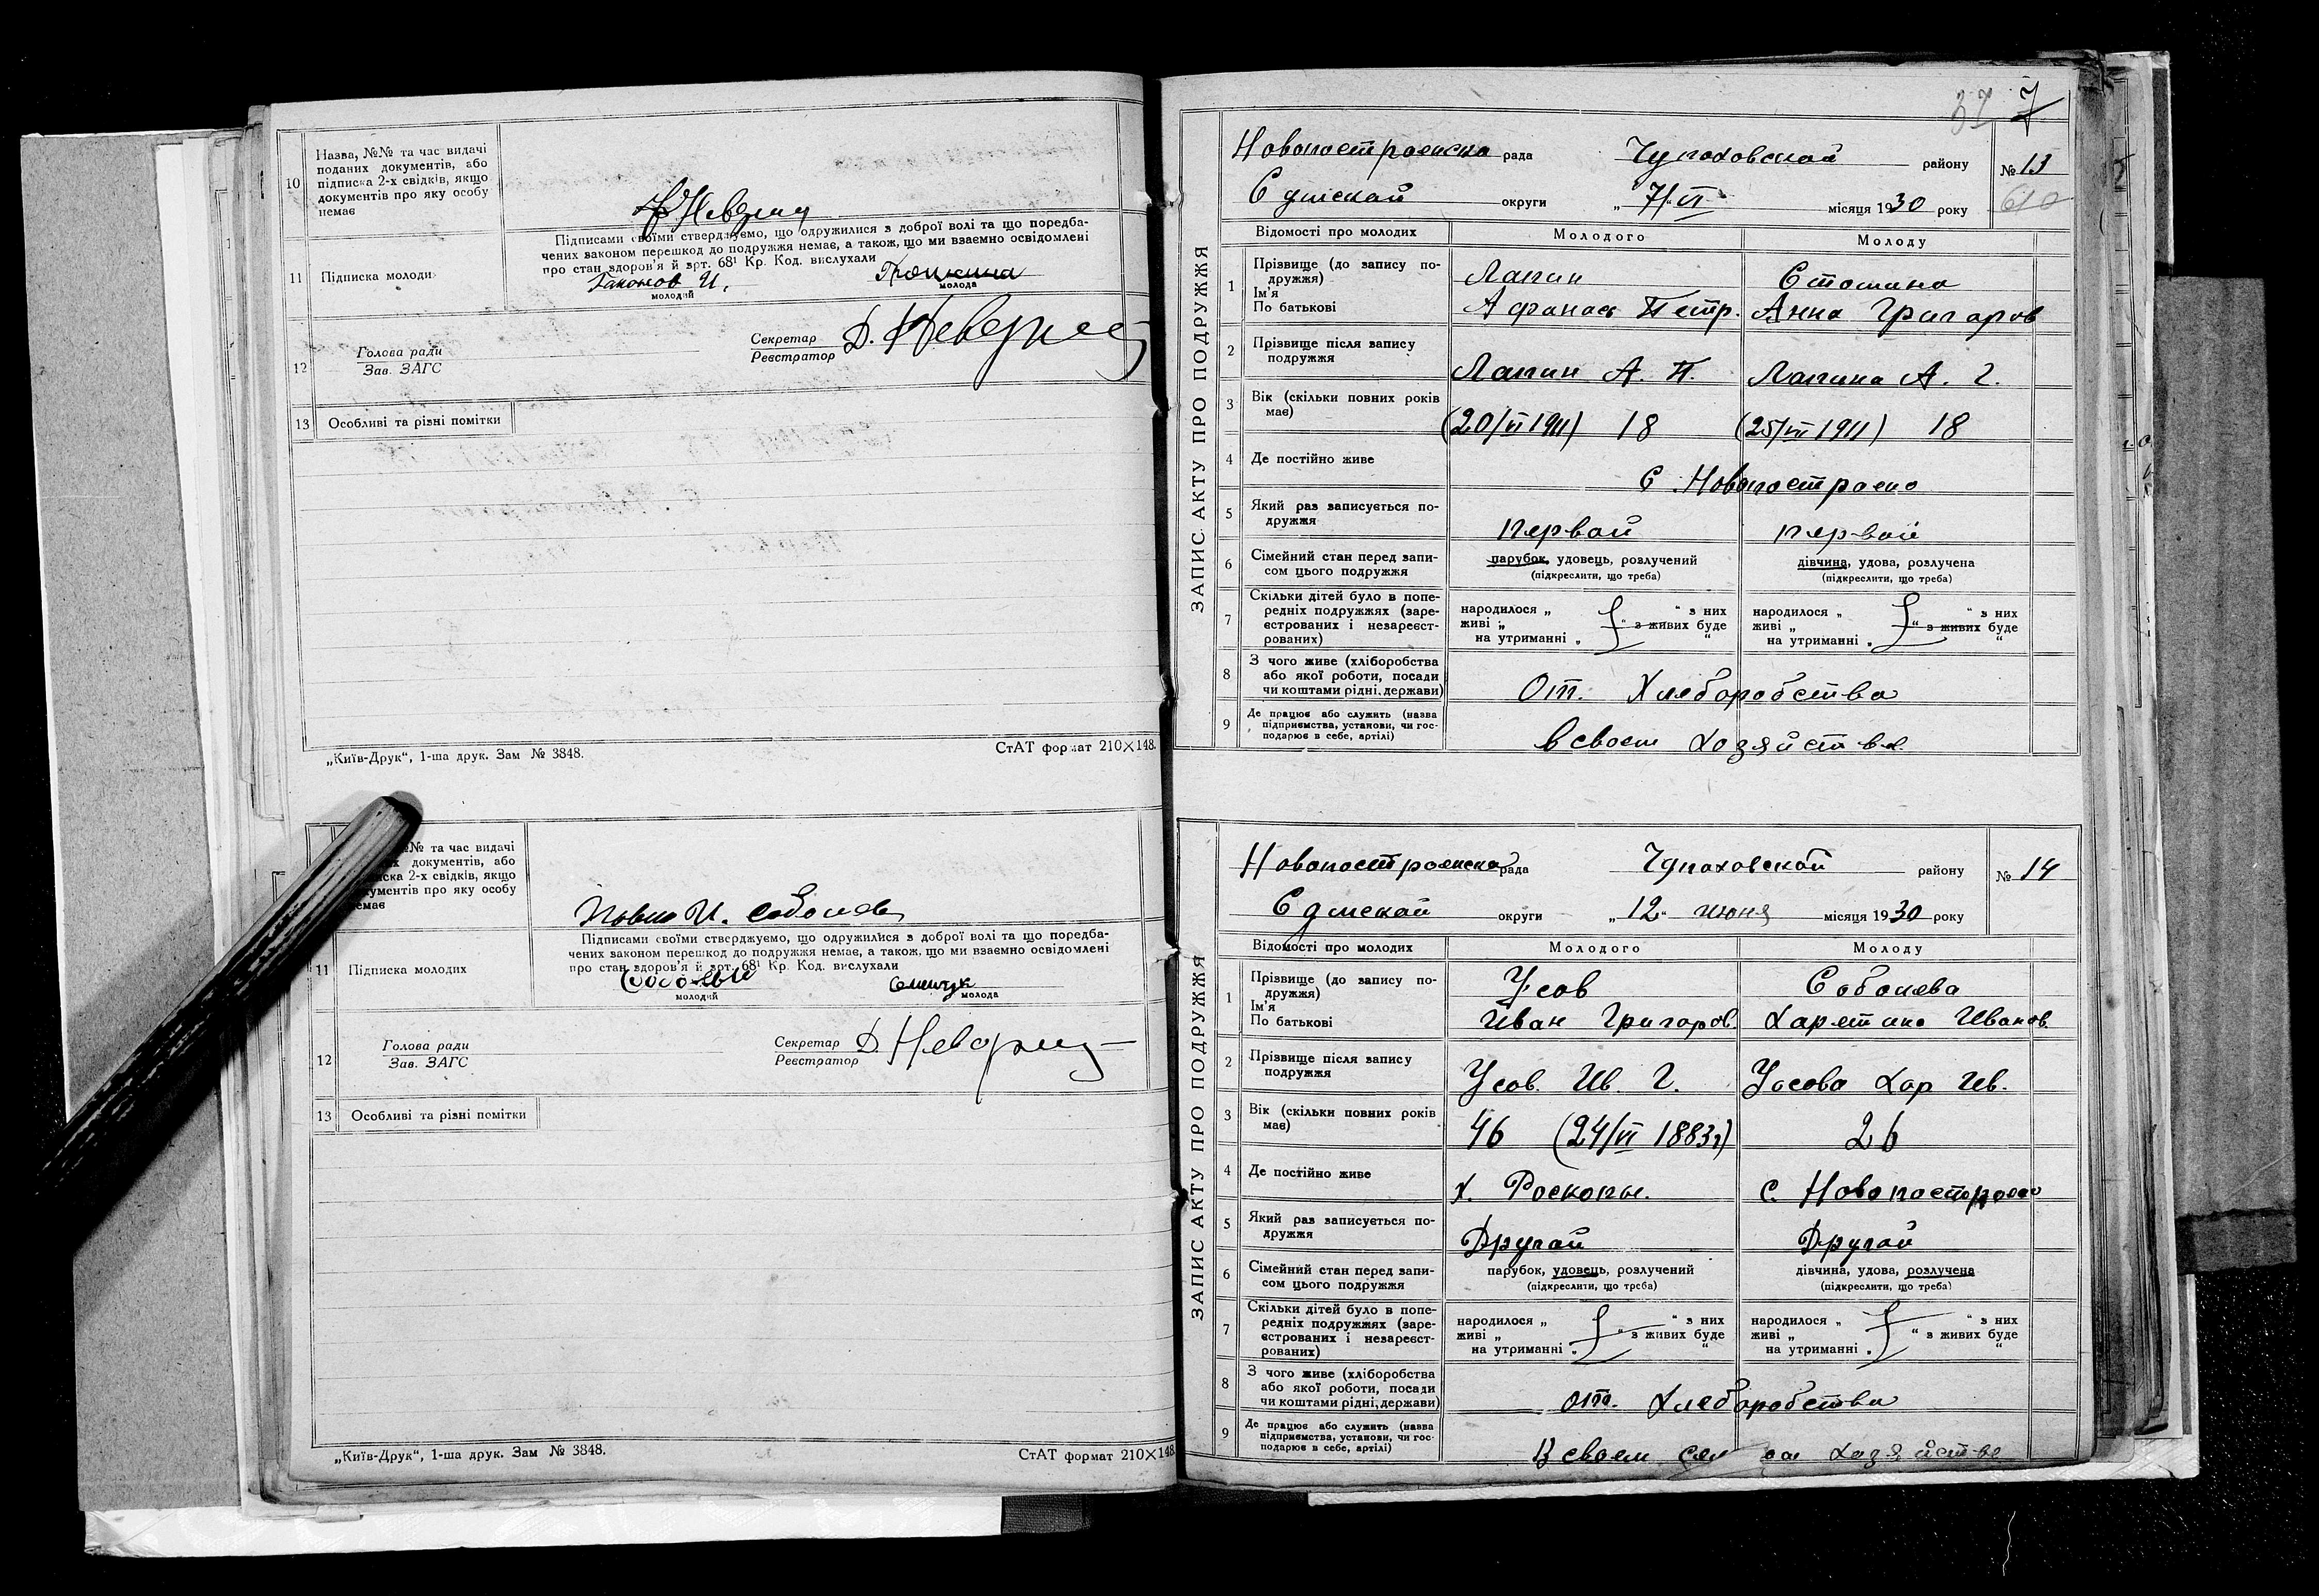 10
Назва, №№ та час видачі
поданих документів, або
підписка 2-х свідків, якщо
документів про яку особу
немає
Підписами своїми стверджуємо, що одружилися з доброї волі та що поредба-
чених законом перешкод до подружжя немає, а також, що ми взаємно освідомлені
про стан здоров'я й арт. 68¹ Кр. Код. вислухали
11 Підписка молоди
Гапонов И.
молодий
молода
12
Голова ради
Зав. ЗАГС
Секретар
Реєстратор
13 Особливі та різні помітки
„Київ-Друк“, 1-ша друк. Зам № 3848.
СтАТ формат 210×148.
№ та час видачі
документів, або
иска 2-х свідків, якщо
кументів про яку особу
немає
И. Соболев
Підписами своїми стверджуємо, що одружилися з доброї волі та що поредба-
чених законом перешкод до подружжя немає, а також, що ми взаємно освідомлені
про стан здоров'я й арт. 68¹ Кр. Код. вислухали
11 Підписка молодих
молодий
молода
12
Голова ради
Зав. ЗАГС
Секретар
Реєстратор
13 Особливі та різні помітки
„Київ-Друк“, 1-ша друк. Зам № 3848.
СтАТ формат 210×148
37 7
ЗАПИС АКТУ ПРО ПОДРУЖЖЯ
Новопостроенска рада Чупаховской району № 13
Сумской округи „7/VI“ місяця 1930 року 610
Відомості про молодих Молодого Молоду
1 Прізвище (до запису по-
дружжя)
Ім'я
По батькові
Лапин
Афанас Петр.
Стошина
Анна Григоров
2 Прізвище після запису
подружжя
Лапин А. П. Лапина А. Г.
3 Вік (скільки повних років
має)
(20/VI 1911) 18 (25/VII 1911) 18
4 Де постійно живе
С. Новопостроено
5 Який раз записується по-
дружжя
первой первой
6 Сімейний стан перед запи-
сом цього подружжя
парубок, удовець, розлучений дівчина, удова, розлучена
(підкреслити, що треба) (підкреслити, що треба)
7 Скільки дітей було в попе-
редніх подружжях (заре-
єстрованих і незареєст-
рованих)
народилося „ “ з них народилося „ “ з них
живі „ “ з живих буде живі „ “ з живих буде
на утриманні „ “ на утриманні „ “
8 З чого живе (хліборобства
або якої роботи, посади
чи коштами рідні, держави)
От. Хлеборобства
9 Де працює або служить (назва
підприємства, установи, чи гос-
подарює в себе, артілі)
в своем хозяйстве
ЗАПИС АКТУ ПРО ПОДРУЖЖЯ
Новопостроенска рада Чупаховской району № 14
Сумской округи „12“ июня місяця 1930 року
Відомості про молодих Молодого Молоду
1 Прізвище (до запису по-
дружжя)
Ім'я
По батькові
Усов
Иван Григоров.
Соболева
Харетина Иванов.
2 Прізвище після запису
подружжя
Усов. Ив. Г. Усова Хар Ив.
3 Вік (скільки повних років
має)
46 (24/VI 1883г) 26
4 Де постійно живе
х. Роскопы. С. Новопостроено
5 Який раз записується по-
дружжя
Другой Другой
6 Сімейний стан перед запи-
сом цього подружжя
парубок, удовець, розлучений дівчина, удова, розлучена
(підкреслити, що треба) (підкреслити, що треба)
7 Скільки дітей було в попе-
редніх подружжях (заре-
єстрованих і незареєст-
рованих)
народилося „ “ з них народилося „ “ з них
живі „ “ з живих буде живі „ “ з живих буде
на утриманні „ “ на утриманні „ “
8 З чого живе (хліборобства
або якої роботи, посади
чи коштами рідні, держави)
от. Хлеборобства
9 Де працює або служить (назва
підприємства, установи, чи гос-
подарює в себе, артілі)
В своем хозяйстве